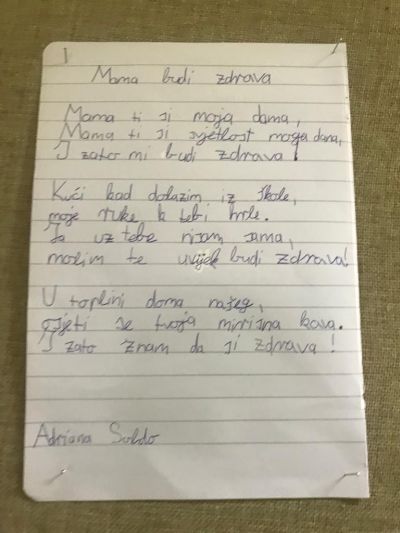 Mama budi zdrava
Mama ti si moja dama,
Mama ti si svjetlost moga dana,
I zato mi budi zdrava!
Kući kad dolazim iz škole,
moje ruke k tebi hrle.
Ja uz tebe nisam sama,
molim te uvijek budi zdrava!
U toplini doma našeg,
osjeti se tvoja mirisna kava.
I zato znam da si zdrava!
Adriana Soldo